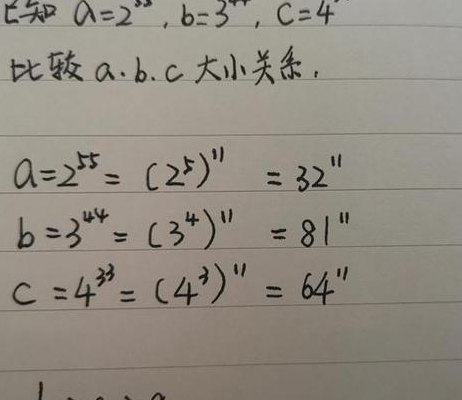 已知 a=2⁵⁵, b=3⁴⁴, c=4
比较 a.b.c 大小关系.
a=2⁵⁵=(2⁵)¹¹=32¹¹
b=3⁴⁴=(3⁴)¹¹=81¹¹
c=4³³=(4³)¹¹=64¹¹